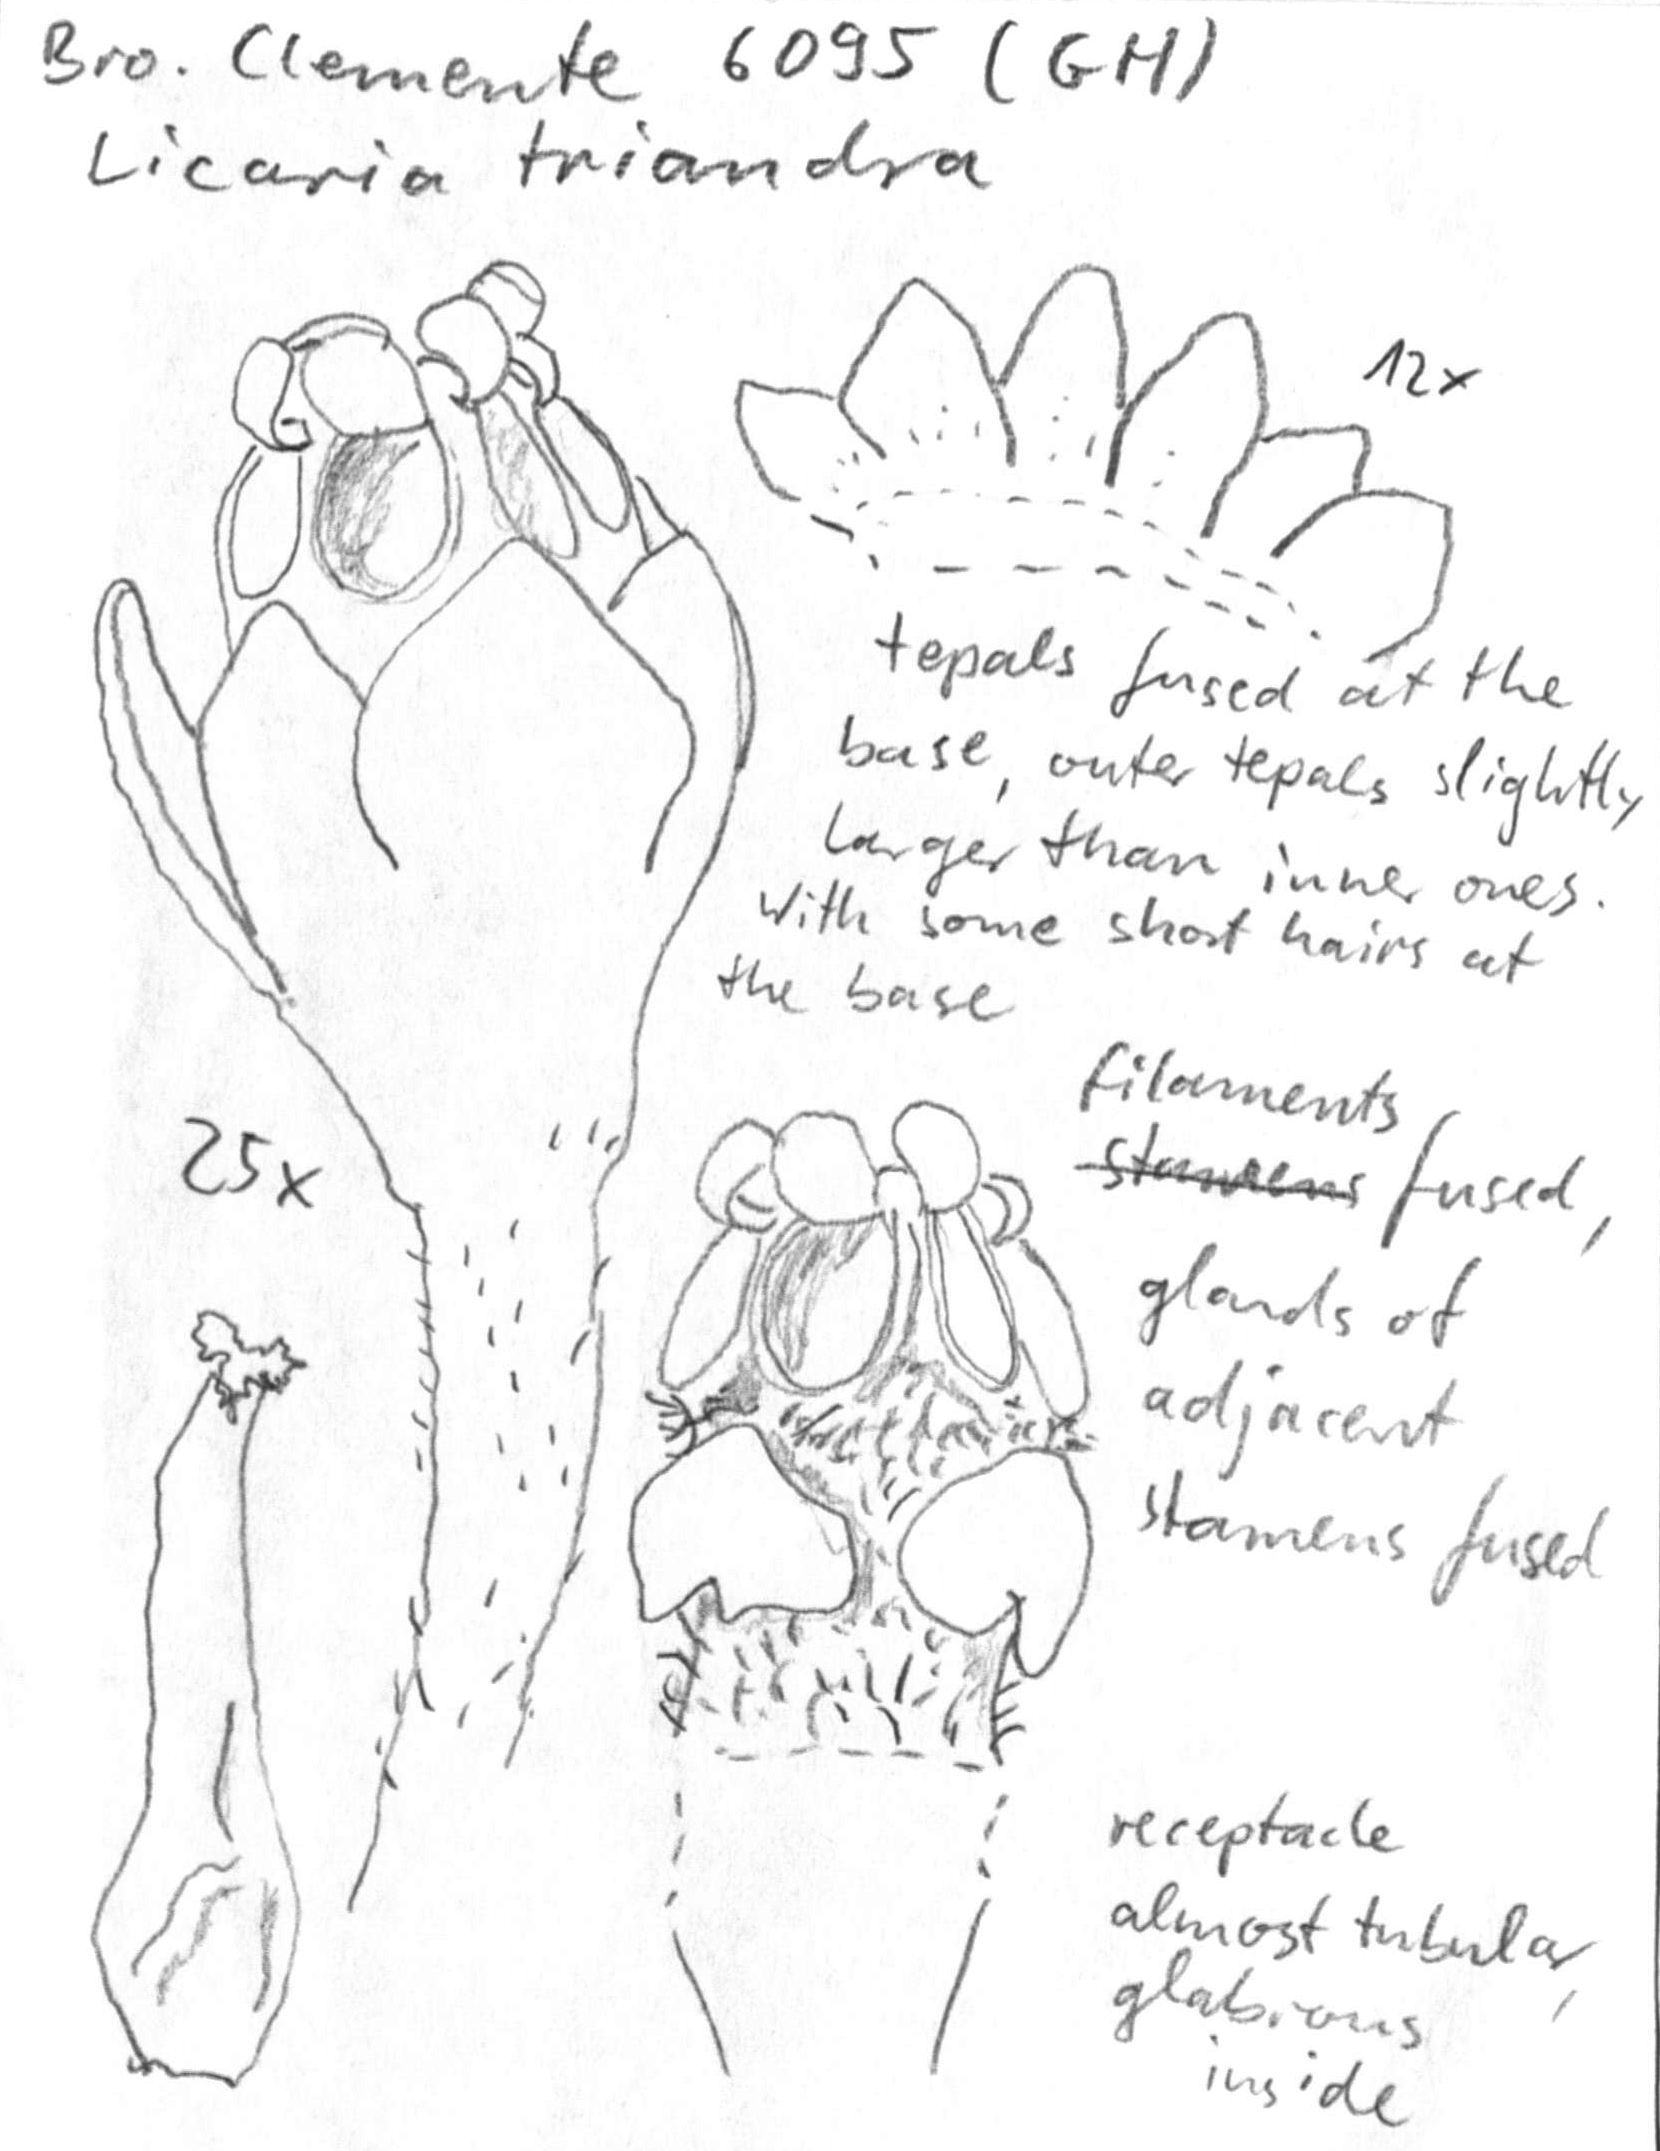 Bro. Clemente 6095 (GH)
Licaria triandra
12x
tepals fused at the
base, outer tepals slightly
larger than inner ones.
With some short hairs at
the base
25x
filaments
stamens fused,
glands of
adjacent
stamens fused
receptacle
almost tubular,
glabrous
inside